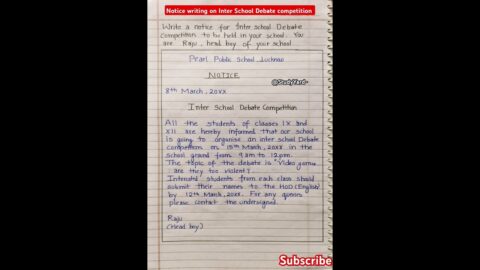 Notice writing on Inter School Debate competition
Write a notice for Inter school Debate
Competition to be held in your school. You
are Raju, head boy of your school
Pearl Public School, Lucknow
NOTICE
@StudyYard-
8th March, 20XX
Inter School Debate Competition
All the students of classes IX and
XII are hereby informed that our school
is going to organise an inter school Debate
competition on 15th March, 20XX in the
school ground from 9 am to 12 pm.
The topic of the debate is "Video games
: are they too violent".
Interested students from each class should
submit their names to the HOD (English)
by 12th March, 20XX. For any queries
please contact the undersigned.
Raju
(Head boy)
Subscribe